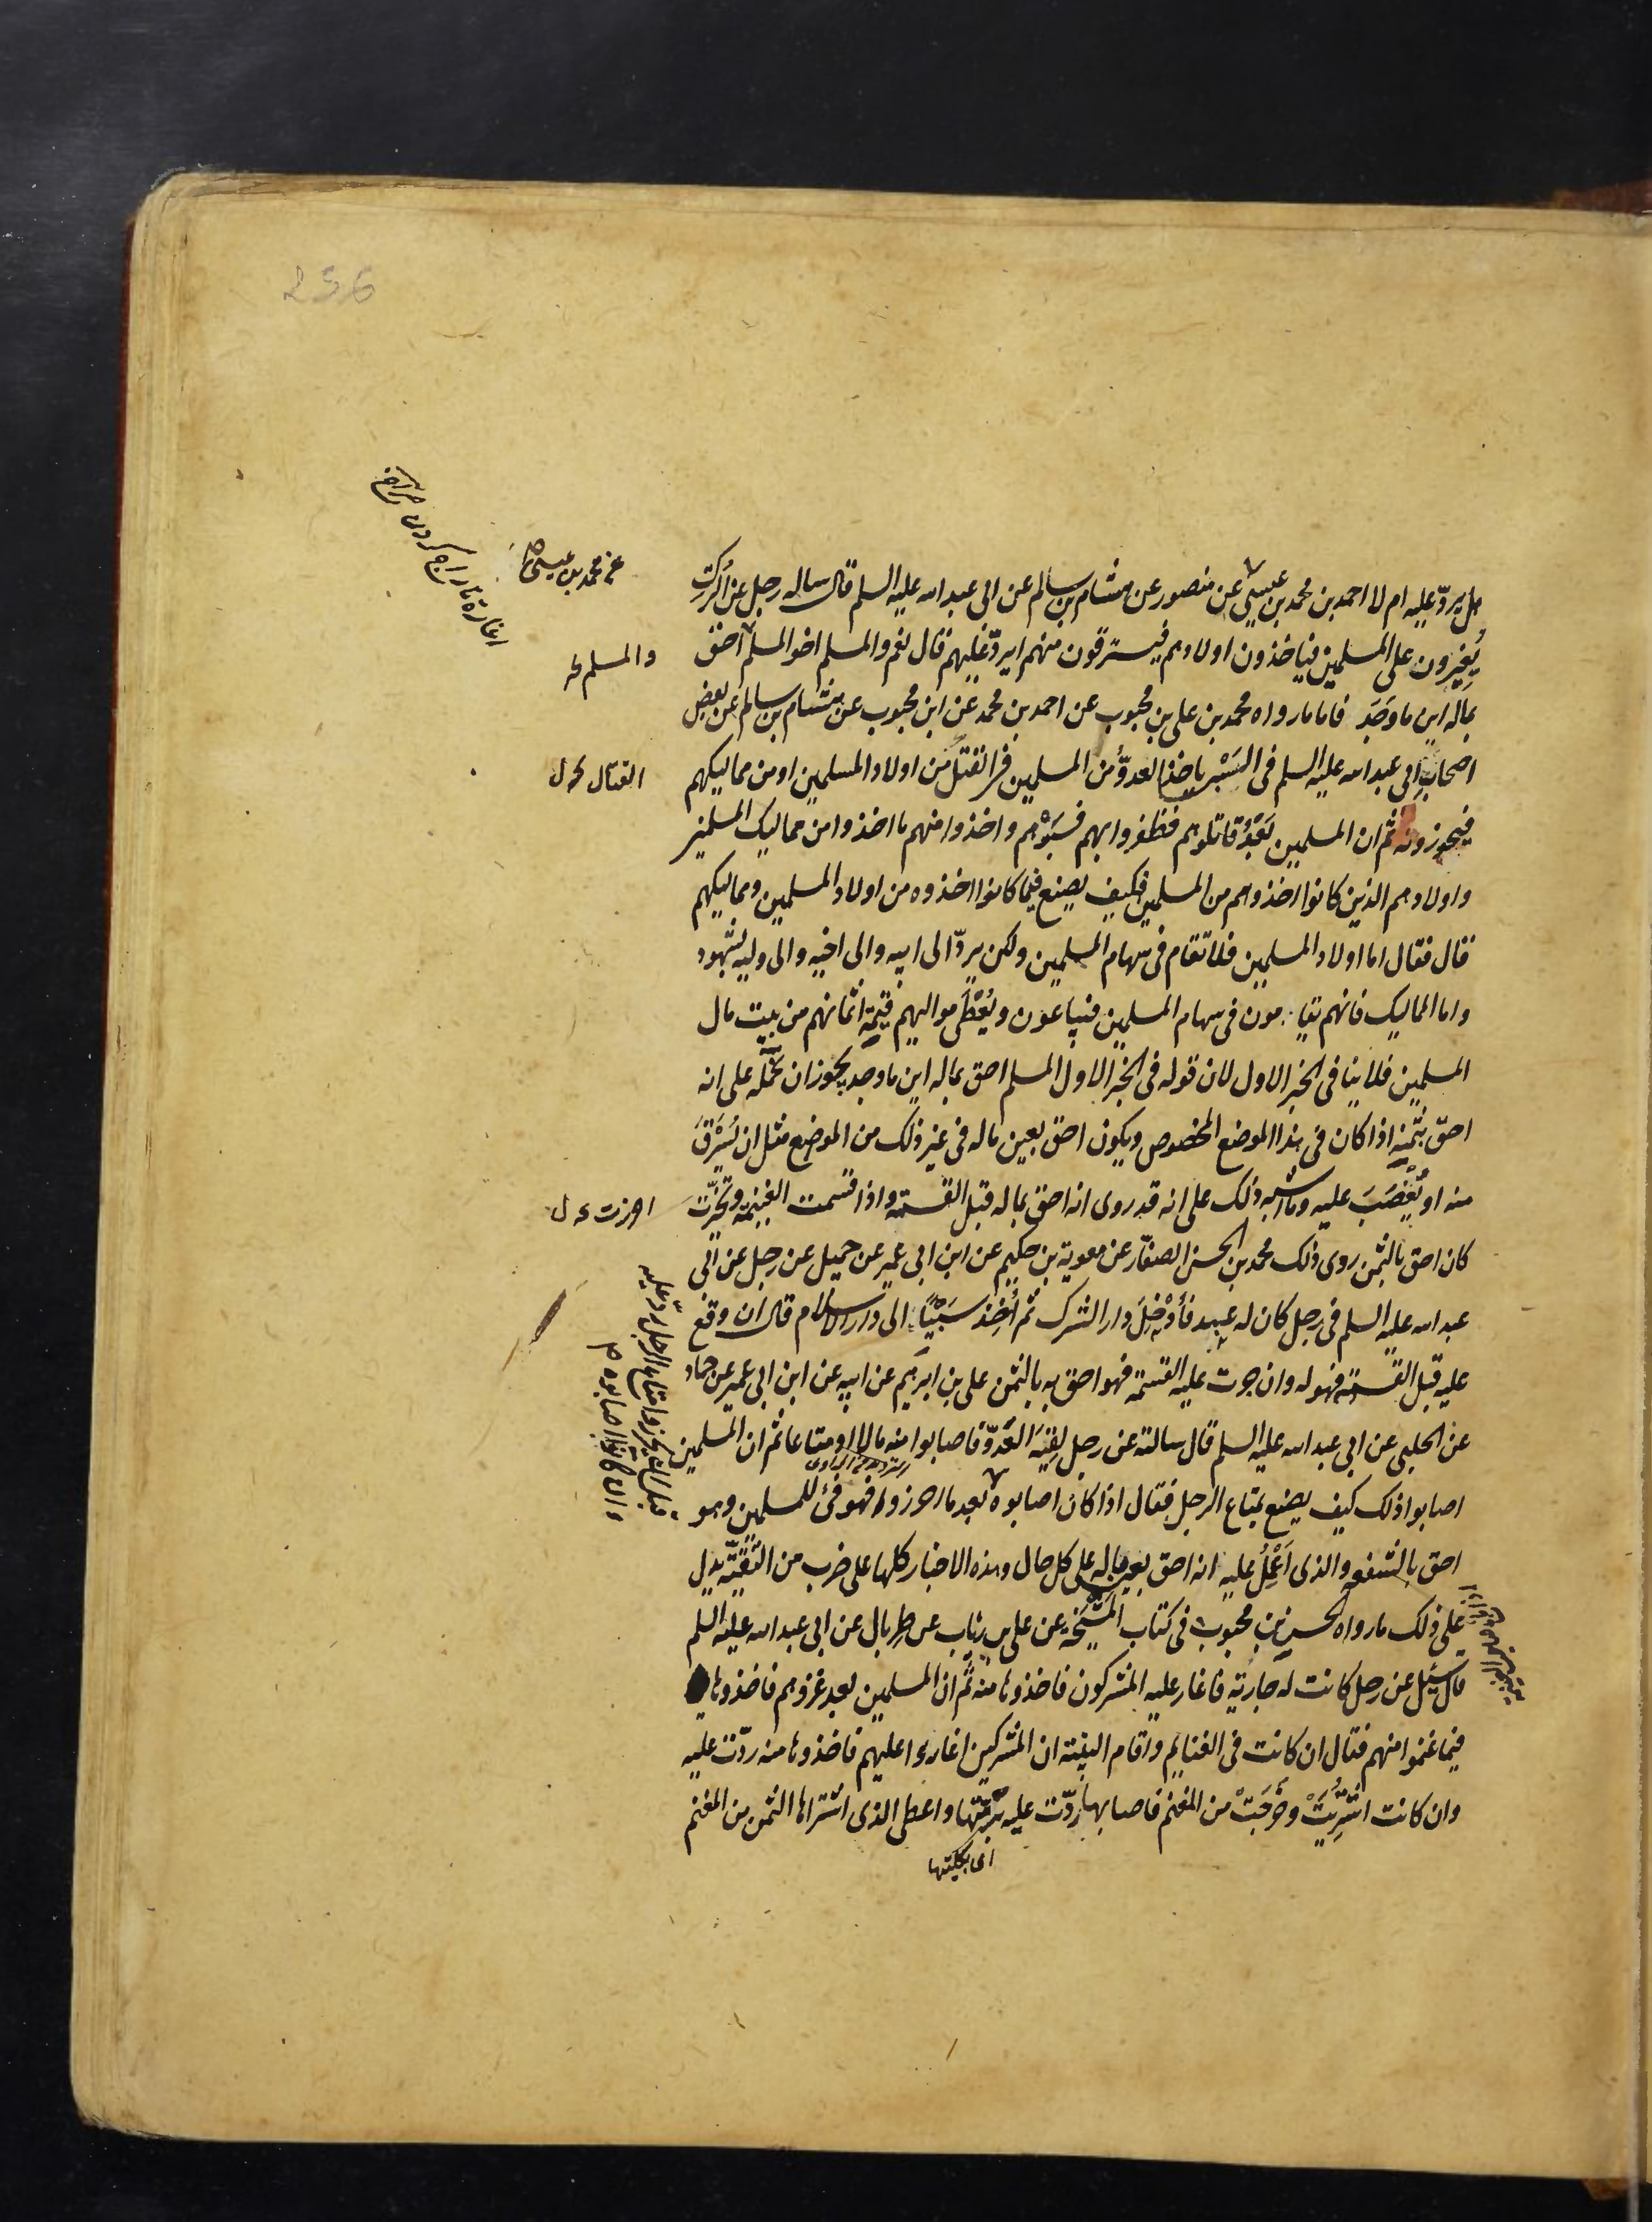 256
هل يردّ عليه ام لا احمد بن محمد بن عيسى عن منصور عن هشام بن سالم عن ابى عبد الله عليه السلم قال ساله رجل عن الترك
يُغِيرون على المسلمين فياخذون اولادهم فيسترقون منهم ايردّ عليهم قال نعم والمسلم اخو المسلم احق
بماله اين ما وَجَدَ فاما ما رواه محمد بن على بن محبوب عن احمد بن محمد عن ابن محبوب عن هشام بن سالم عن بعض
اصحاب ابى عبد الله عليه السلم فى السَبْى ياخذ العدوّ من المسلمين فى القتل من اولاد المسلمين او من مماليكهم
فيحوزونه ثم ان المسلمين بَعْدُ قاتلوهم فظفروا بهم فسَبَوْهم واخذوا منهم ما اخذوا من مماليك المسلمين
واولادهم الذين كانوا اخذوهم من المسلمين فكيف يصنع فيما كانوا اخذوه من اولاد المسلمين ومماليكهم
قال فقال اما اولاد المسلمين فلا تقام فى سهام المسلمين ولكن يردّ الى ابيه والى اخيه والى وليه بشهود
واما المماليك فانهم يقامون فى سهام المسلمين فيباعون ويُعْطَى مواليهم قيمة اثمانهم من بيت مال
المسلمين فلا ينافى الخبر الاول لان قوله فى الخبر الاول المسلم احق بماله اين ما وجد يجوز ان نحمله على انه
احقّ بثمنه اذا كان فى هذا الموضع المخصوص ويكون احق بعين ماله فى غير ذلك من الموضع مثل ان يُسْرَقَ
منه او يُغْصَبَ عليه وما اشبه ذلك على انه قد روى انه احق بماله قبل القسمة واذا قسمت الغنيمة وتحيّزت
كان احق بالثمن روى ذلك محمد بن الحسن الصفّار عن معوية بن حكيم عن ابن ابى عمير عن جميل عن رجل عن ابى
عبد الله عليه السلم فى رجل كان له عبيد فأُدْخِلَ دار الشرك ثم أُخِذ سَبْيًا الى دار الاسلام قال ان وقع
عليه قبل القسمة فهو له وان جرت عليه القسمة فهو احق به بالثمن على بن ابرهيم عن ابيه عن ابن ابى عمير عن حماد
عن الحلبى عن ابى عبد الله عليه السلم قال سالته عن رجل لقيه العدوّ فاصابوا منه مالا او متاعا ثم ان المسلمين
اصابوا ذلك كيف يصنع بمتاع الرجل فقال اذا كان اصابوه بعد ما احرزوا فهو فئ للمسلمين وهو
احق بالشفعه والذى أَعْمِلُ عليه انه احق بعين ماله على كل حال وهذه الاخبار كلها على ضرب من التَقِيّة يدل
على ذلك ما رواه الحسن بن محبوب فى كتاب المَشيَخَة عن على بن رئاب عن طِربال عن ابى عبد الله عليه السلم
قال سئل عن رجل كانت له جارية فاغار عليه المشركون فاخذوها منه ثم ان المسلمين بعد غزوهم فاخذوها
فيما غنموا منهم فقال ان كانت فى الغنايم واقام البينة ان المشركين اغاروا عليهم فاخذوها منه ردّت عليه
وان كانت اشتُرِيَتْ وخَرَجَتْ من المغنم فاصابها ردّت عليه برُمّتها واعطى الذى اشتراها الثمن من المغنم
اى بكليتها
عن محمد بن عيسى
والمسلم
القتال
احرزت
قبل ان يحوزوا متاع الرجل ردّ عليه
وان كانوا اصابوه